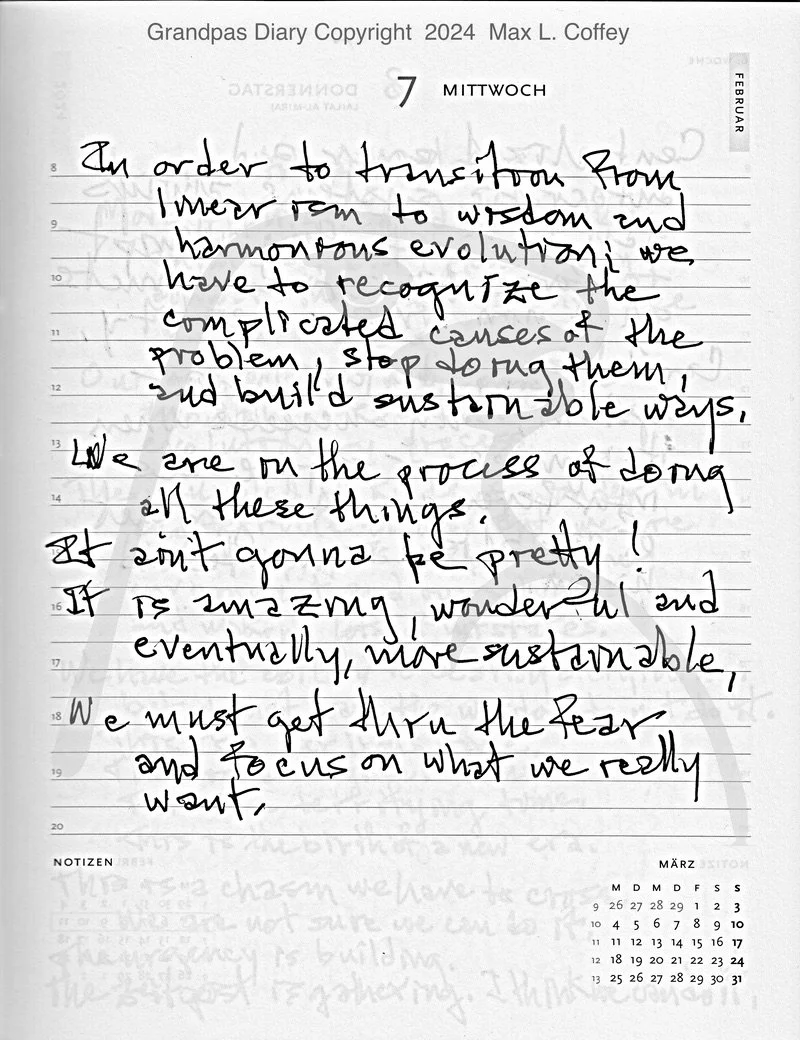 Grandpas Diary Copyright 2024 Max L. Coffey
7 MITTWOCH
FEBRUAR
In order to transition from
linear ism to wisdom and
harmonious evolution; we
have to recognize the
complicated causes of the
problem, stop doing them,
and build sustainable ways.
We are in the process of doing
all these things.
It ain't gonna be pretty!
It is amazing, wonderful and
eventually, more sustainable,
We must get thru the fear
and focus on what we really
want.
8
9
10
11
12
13
14
16
17
18
19
20
NOTIZEN
MÄRZ
M D M D F S S
9 26 27 28 29 1 2 3
10 4 5 6 7 8 9 10
11 11 12 13 14 15 16 17
12 18 19 20 21 22 23 24
13 25 26 27 28 29 30 31
This is a chasm we have to cross
We are not sure we can do it.
is building.
is gathering. I think